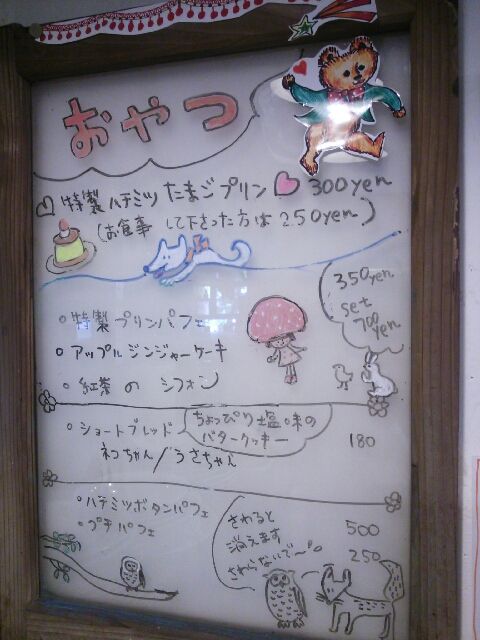 おやつ
特製ハチミツたまごプリン 300yen
(お食事して下さった方は250yen)
350yen
set
700yen
特製プリンパフェ
アップルジンジャーケーキ
紅茶のシフォン
ショートブレッド
ちょっぴり塩味の
バタークッキー
180
ネコちゃん/うさちゃん
ハチミツボタンパフェ 500
プチパフェ 250
さわると
消えます
さわらないで〜